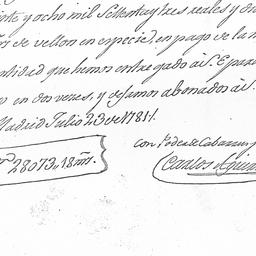 y ocho mil Setenta y tres reales y
de vellon en especie, en pago de la
que hemos entregado à S. E. para
en dos vezes, y dejamos abonados à S.
Madrid Julio 23 de 1781
con Poder de Cabarrus
28073,,18 mrs.
Carlos